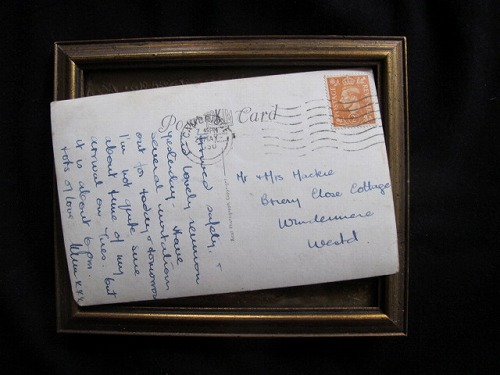 Post Card
CAMBRIDGE
7 45 PM
Arrived safely, &
a lovely reunion
yesterday. Have
several invitations
out for today & tomorrow
I'm not quite sure
about time of my
arrival on Tues. but
it is about 6 pm.
Lots of love
xxx
Mr & Mrs Mackie
Briery Close Cottage
Windermere
Westd